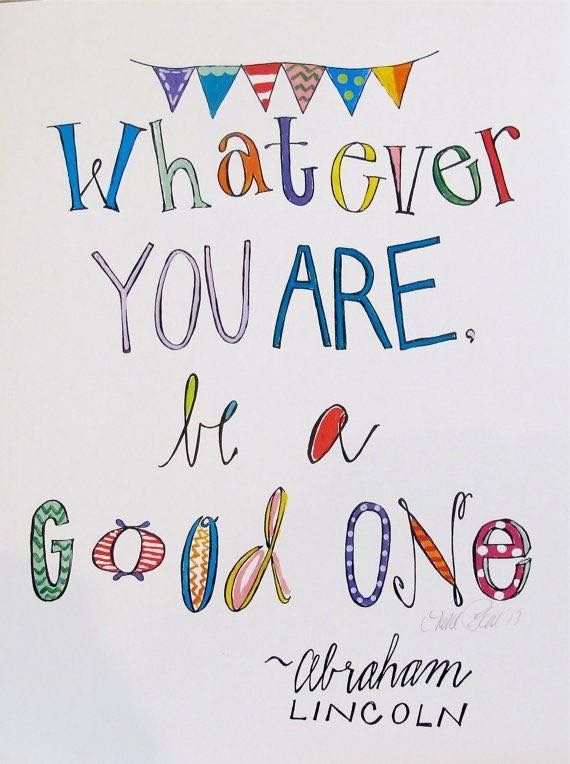 Whatever
YOU ARE,
be a
GOOd ONe
~Abraham
LINCOLN